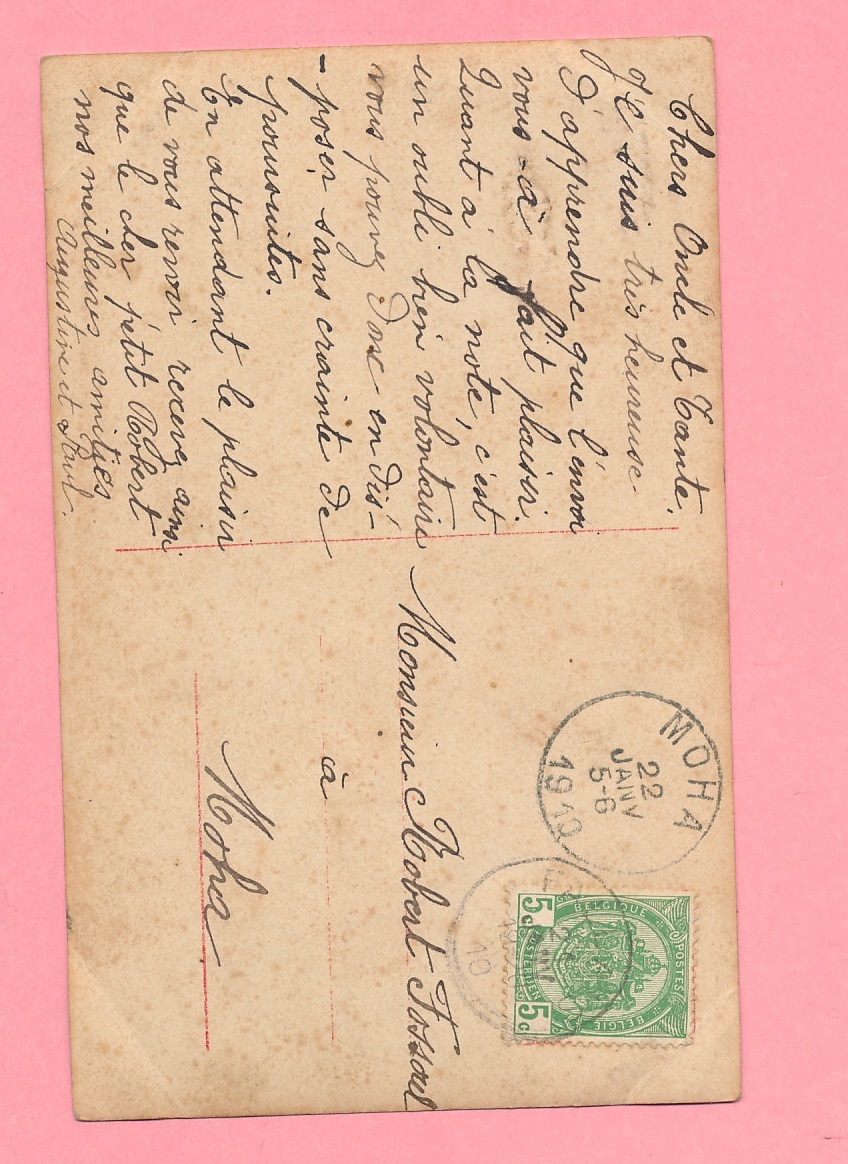 Chers Oncle et Tante.
Je suis très heureuse-
D'apprendre que l'envoi
vous-à fait plaisir.
Quant à la note, c'est
un oubli bien volontaire
vous pouvez Donc en dis-
-poser, sans crainte de
poursuites.
En attendant le plaisir
de vous revoir recevez ainsi
que le cher petit Robert
nos meilleures amitiés
Augustine et
MOHA
22
JANV
5-6
1910
10
BELGIQUE
POSTES
BELGIE
5c
5c
Monsieur Robert Fossoul
à
Moha